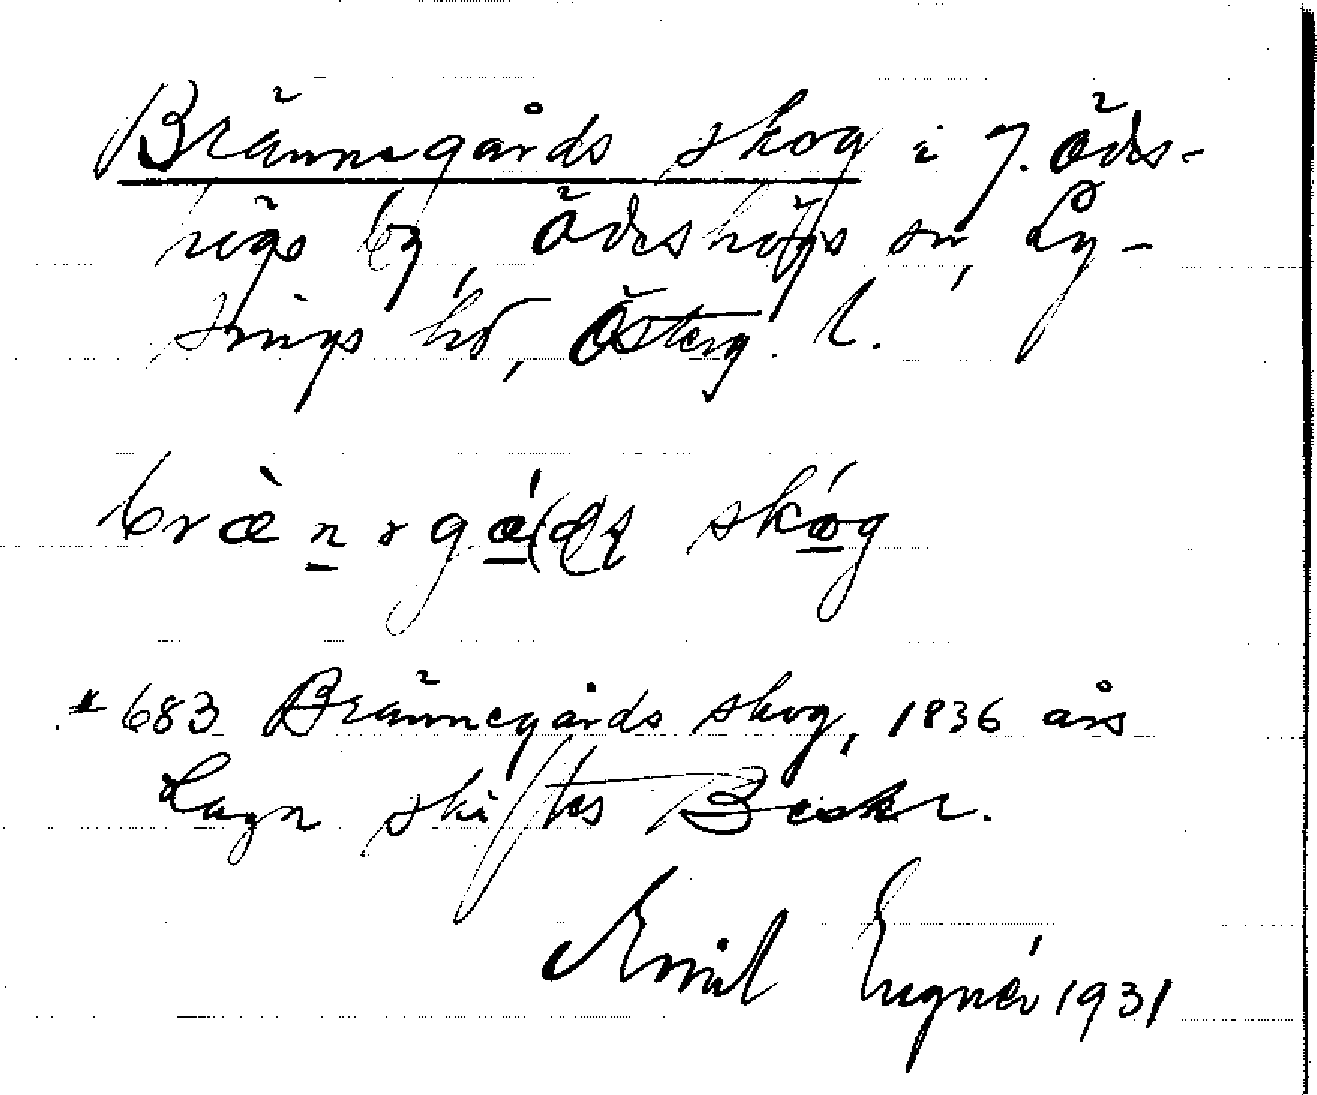 Brännegårds skog i 7. Ödes-
högs by, Ödeshögs sn, Ly-
sings hd, Österg. l.
bræ̀nəgá(d)s skóg
*683 Brännegårds skog, 1836 års
Laga skiftes Beskr.
Emil Eugnér 1931